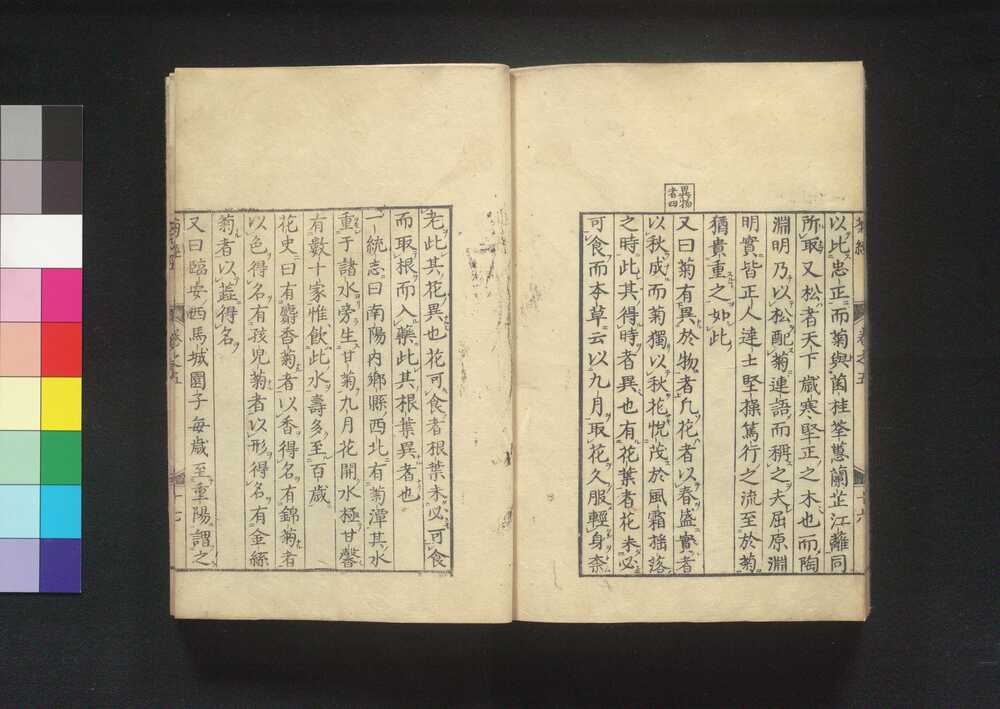 菊經 卷之五 十六
以比忠正而菊與菌桂荃蕙蘭芷江蘺同
所取又松者天下歲寒堅正之木也而陶
淵明乃以松配菊連語而稱之夫屈原淵
明實皆正人達士堅操篤行之流至於菊
猶貴重之如此
異物
者四
又曰菊有異於物者凡花者以春盛實者
以秋成而菊獨以秋花悅茂於風霜揺落
之時此其得時者異也有花葉者花未必
可食而本草云以九月取花久服輕身奈
老此其花異也花可食者根葉未必可食
而取根而入藥此其根葉異者也
一統志曰南陽内鄉縣西北有菊潭其水
重于諸水旁生甘菊九月花開水極甘馨
有數十家惟飲此水壽多至百歲
花史曰有麝香菊者以香得名有錦菊者
以色得名有孩兒菊者以形得名有金絲
菊者以蕋得名
又曰臨安西馬城園子每歲至重陽謂之
菊經 卷之五 十七